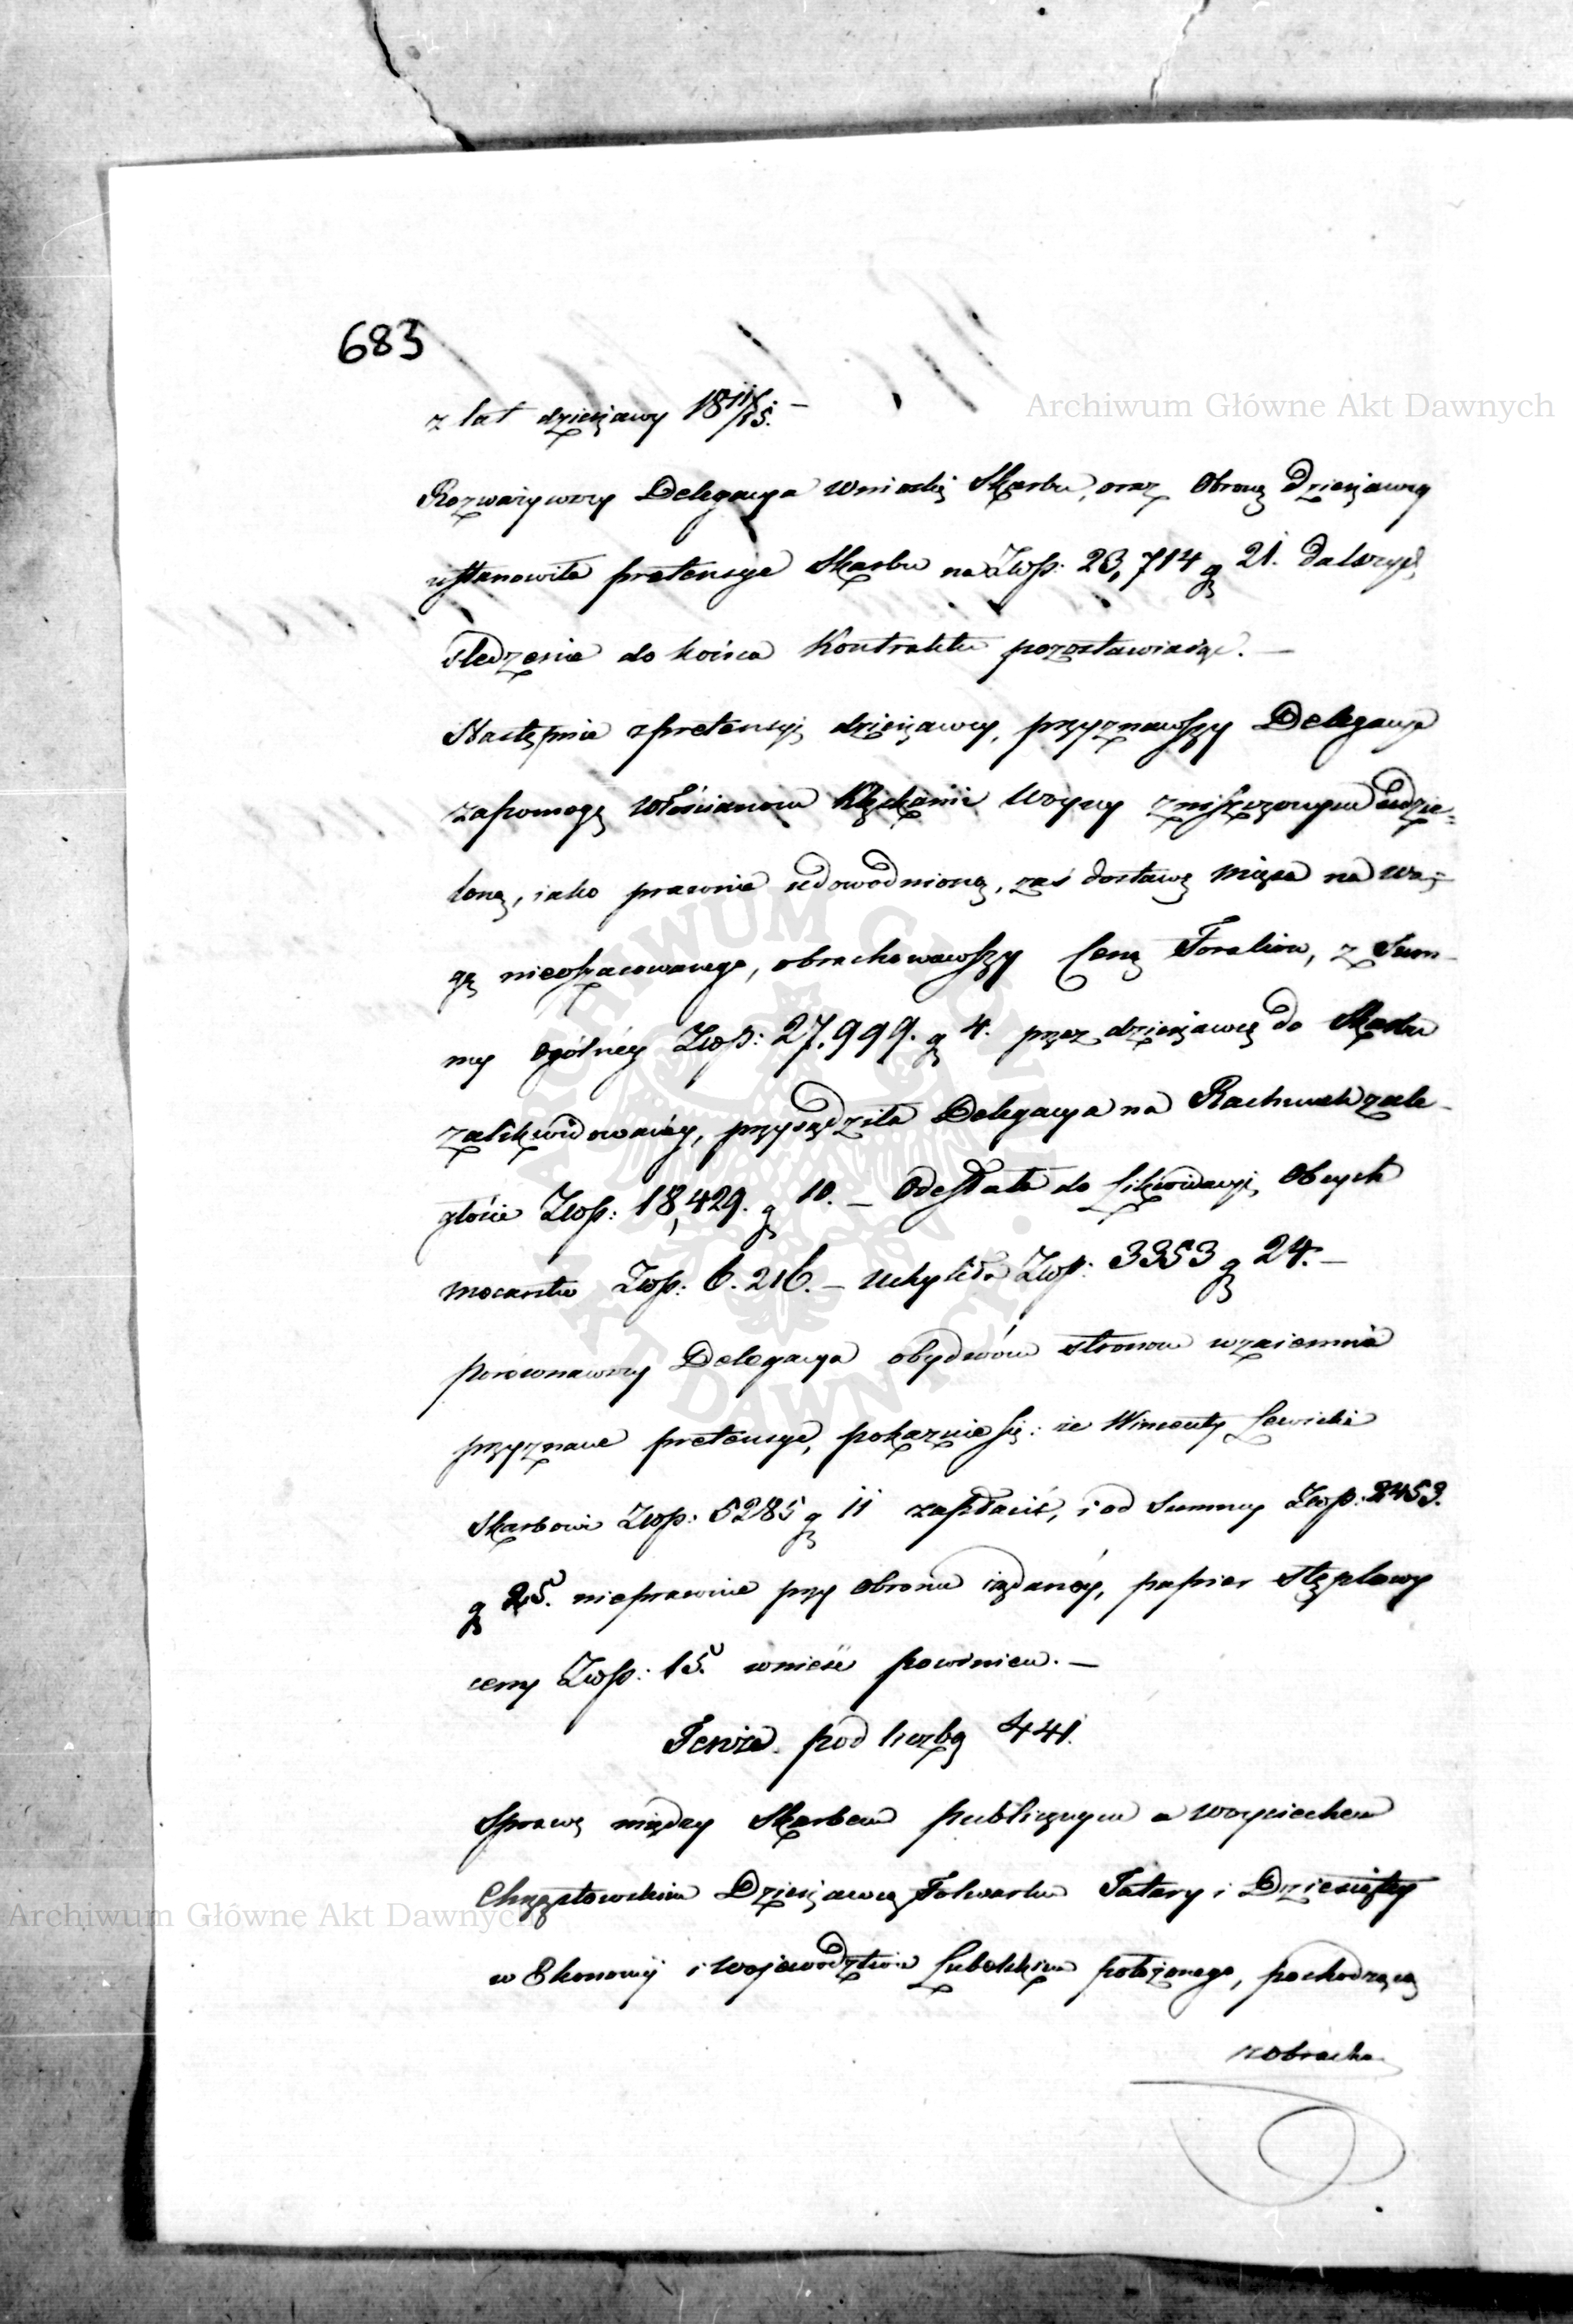 683
z lat dzierżawy 18 11/15. –
Rozważywszy Delegacya Wnioski Skarbu, oraz Obronę Dzierżawcy
ustanowiła pretensye Skarbu na Złp: 23,714 g 21. dalszych
śledzenie do końca Kontraktu pozostawiaiąc. –
Następnie z pretensyi dzierżawcy, przyznawszy Delegacya
zapomogę Włościanom klęskami Woyny zniszczonym udzie=
loną, iako prawnie udowodnioną, zaś dostawę mięsa na wa-
gę nieoszacowanego, obrachowawszy Ceną Foraliow, z Sum-
my ogólnéy Złp: 27,999. g 4. przez dzierżawcę do Skarbu
zalikwidowanéy, przysądziła Delegacya na Rachunek zale-
głości Złp: 18,429. g 10. – Odesłała do Likwidacyi Obcych
Mocarstw Złp: 6.216. – Uchyliła Złp: 3353 g 24. –
porównawszy Delegacya obydwóm stronom wzaiemnie
przyznane pretensye, pokazuie się: że Wincenty Lewicki
Skarbowi Złp: 5285 g 11 zapłacić, i od Summy Złp: 2453.
g 25. nieprawnie przy obronie żądanéy, papier stęplowy
ceny Złp: 15. wnieść powinien. –
Tenże pod liczbą 441.
Sprawę między Skarbem publicznym a Woyciechem
Chrząstowskim Dzierżawcą Folwarku Tatary i Dziesięty
w Ekonomij i Wojewodztwie Lubelskim położonego, pochodzącą
z obracho
Archiwum Główne Akt Dawnych
Archiwum Główne Akt Dawnych
ARCHIWUM GŁÓWNE AKT DAWNYCH